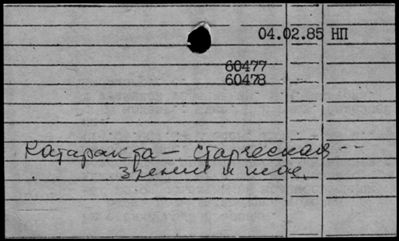 04.02.85 НП
60477
60478
Катаракта — старческая --
зрение и мозг.